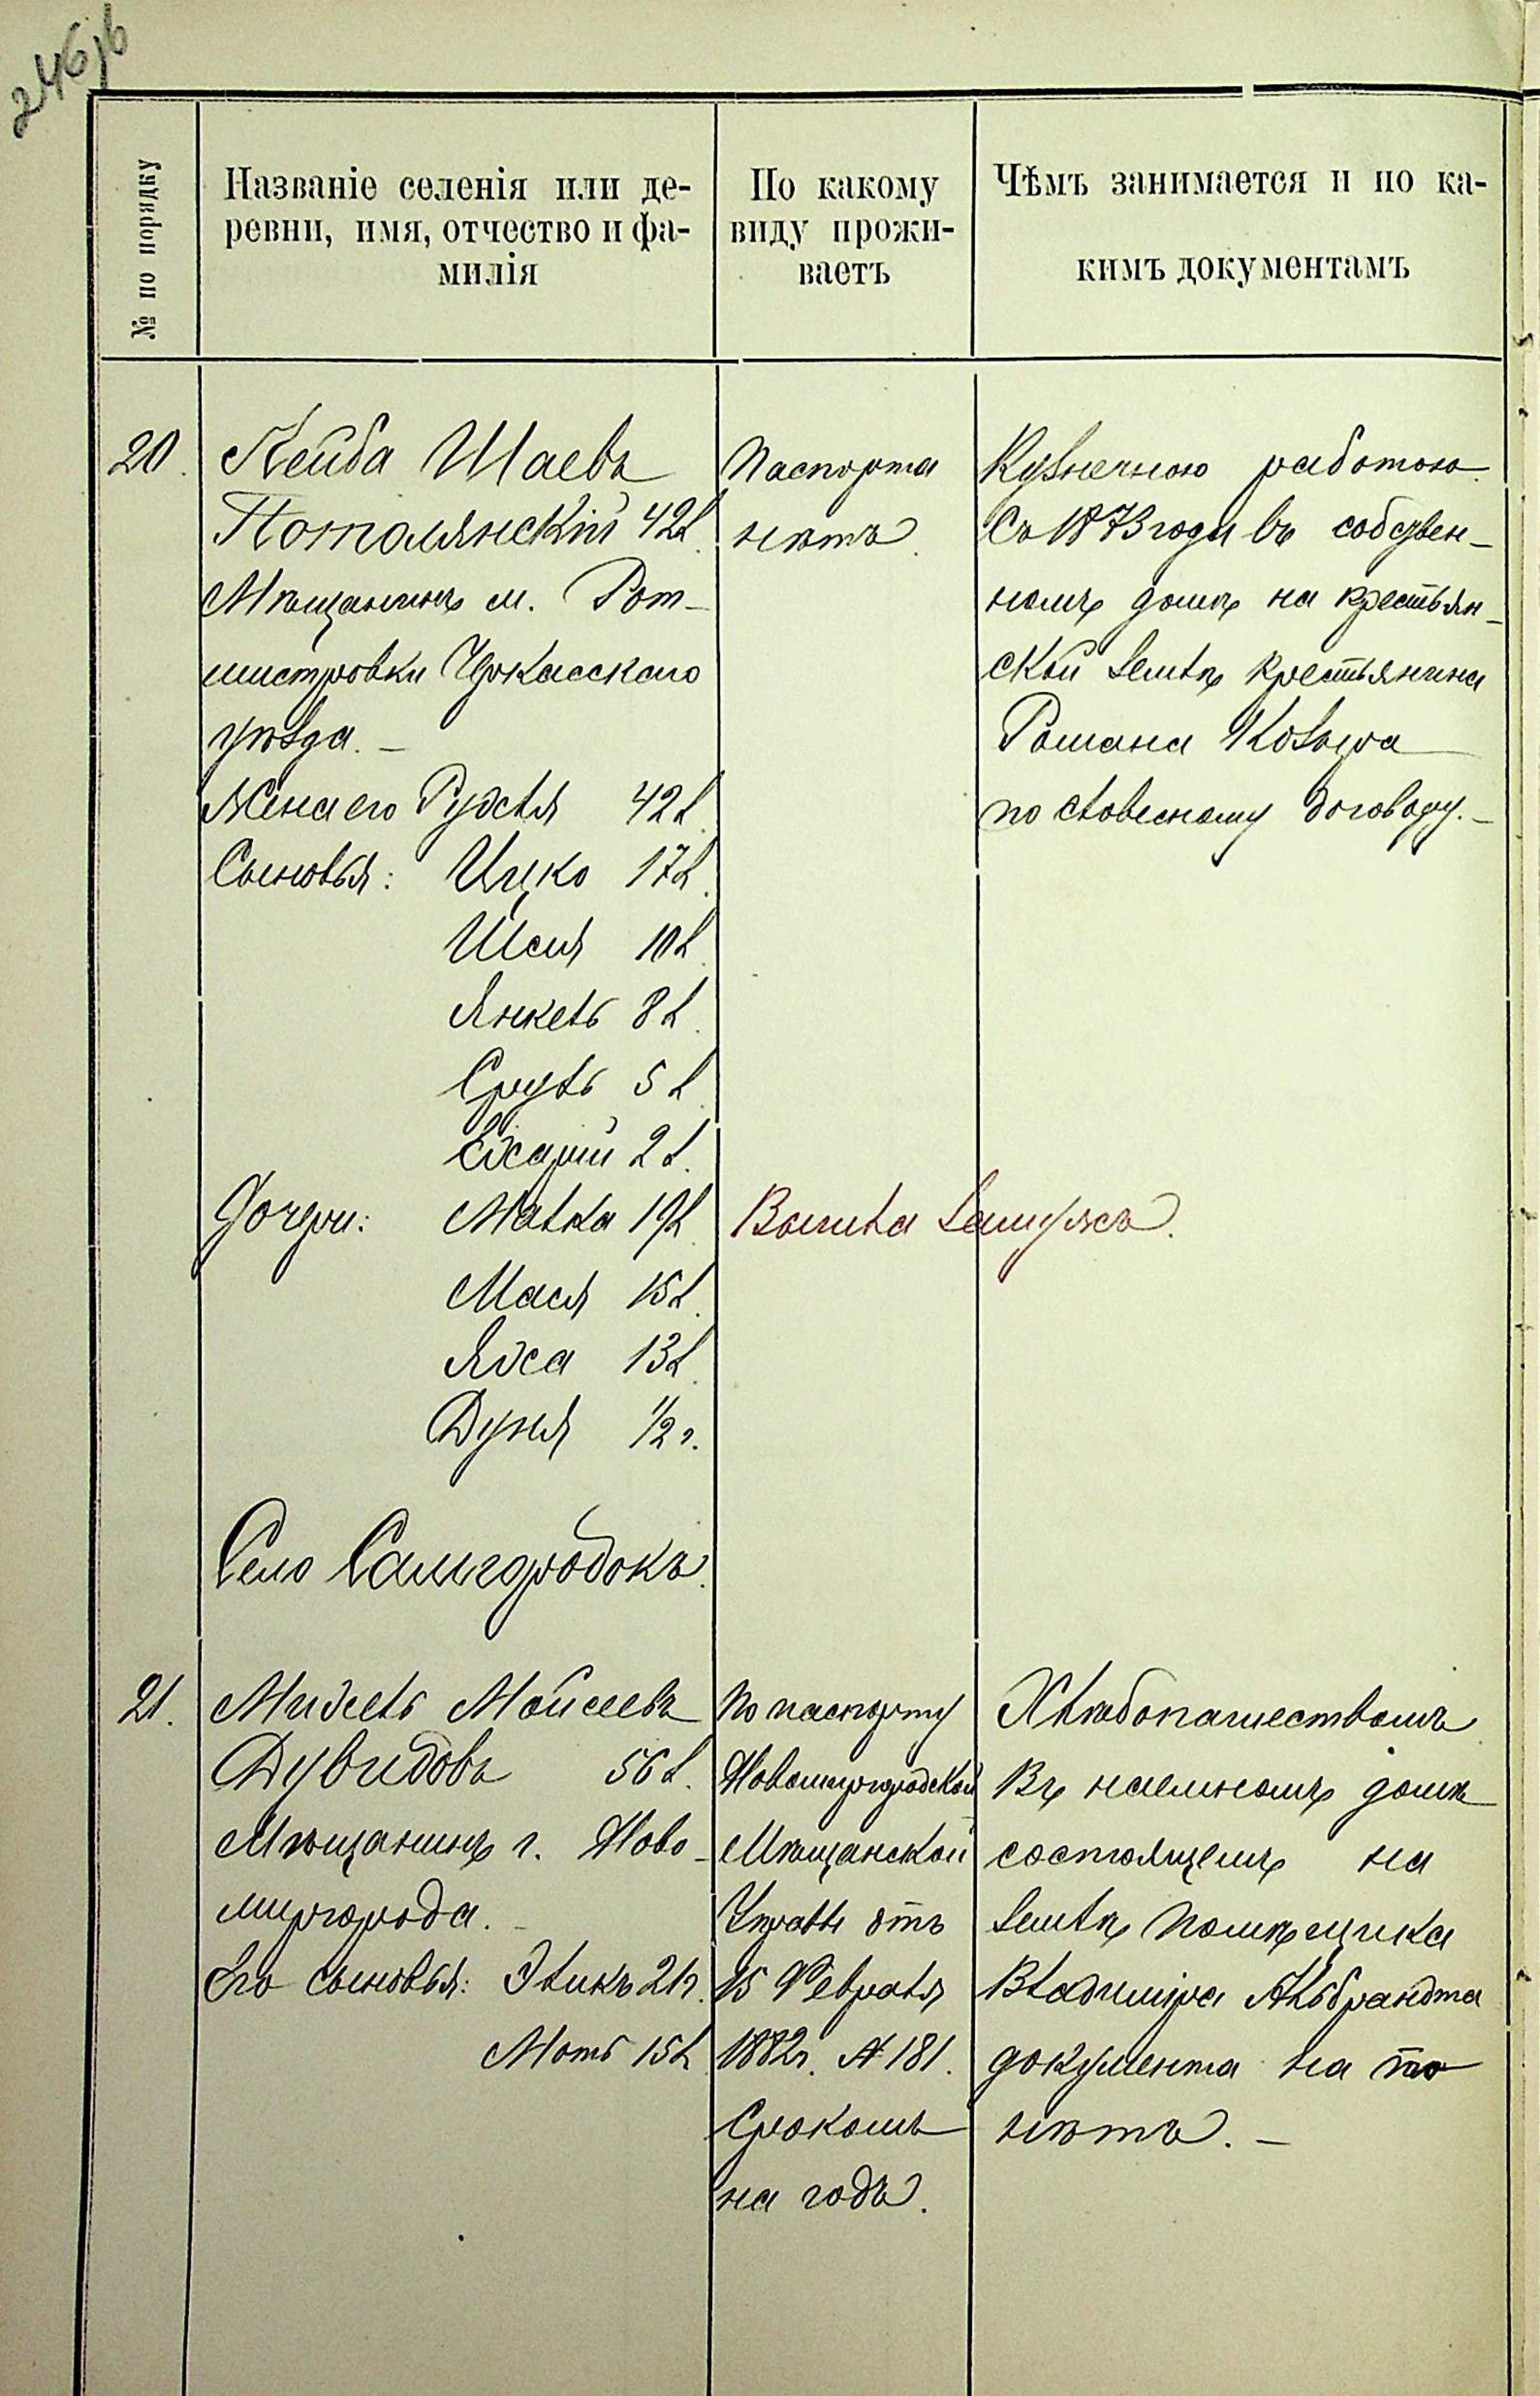 246об
№ по порядку
Названіе селенія или де-
ревни, имя, отчество и фа-
милія
По какому
виду прожи-
ваетъ
Чѣмъ занимается и по ка-
кимъ документамъ
20.
Лейба Шаевъ
Потолянскій 42 л.
Мѣщанинъ м. Рот-
мистровки Черкасскаго
уѣзда. -
Жена его Рухля 42 л.
Сыновья: Ицко 17 л.
Шая 10 л.
Янкель 8 л.
Сруль 5 л.
2 л.
Дочери: Малка 19 л.
Мася 15 л.
Хаса 13 л.
Дуня 1/2 г.
Паспорта
нѣтъ.
Вышла замужъ.
Кузнечною работою.
Съ 1873 года въ собствен-
номъ домѣ на крестьян-
ской землѣ крестьянина
Романа Козыра
по словесному договору. -
Село Самгородокъ.
21.
Михель Мойсеевъ
Дувидовъ 56 л.
Мѣщанинъ г. Ново-
миргорода. -
Его сыновья: Эликъ 21 г.
Моть 15 л.
По паспорту
Новомиргородской
Мѣщанской
Управы отъ
15 Февраля
1882 г. № 181.
Срокомъ
на годъ.
Хлѣбопашествомъ
Въ наемномъ домѣ
состоящемъ на
землѣ помѣщика
Владиміра Альбрандта
документа на то
нѣтъ. -